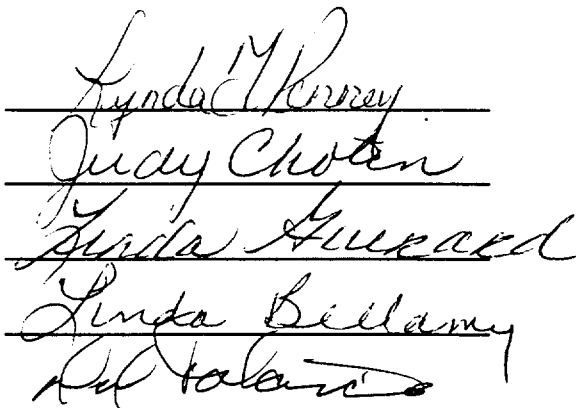 Lynda M Penney
Judy Chotin
Linda Guerard
Linda Bellamy